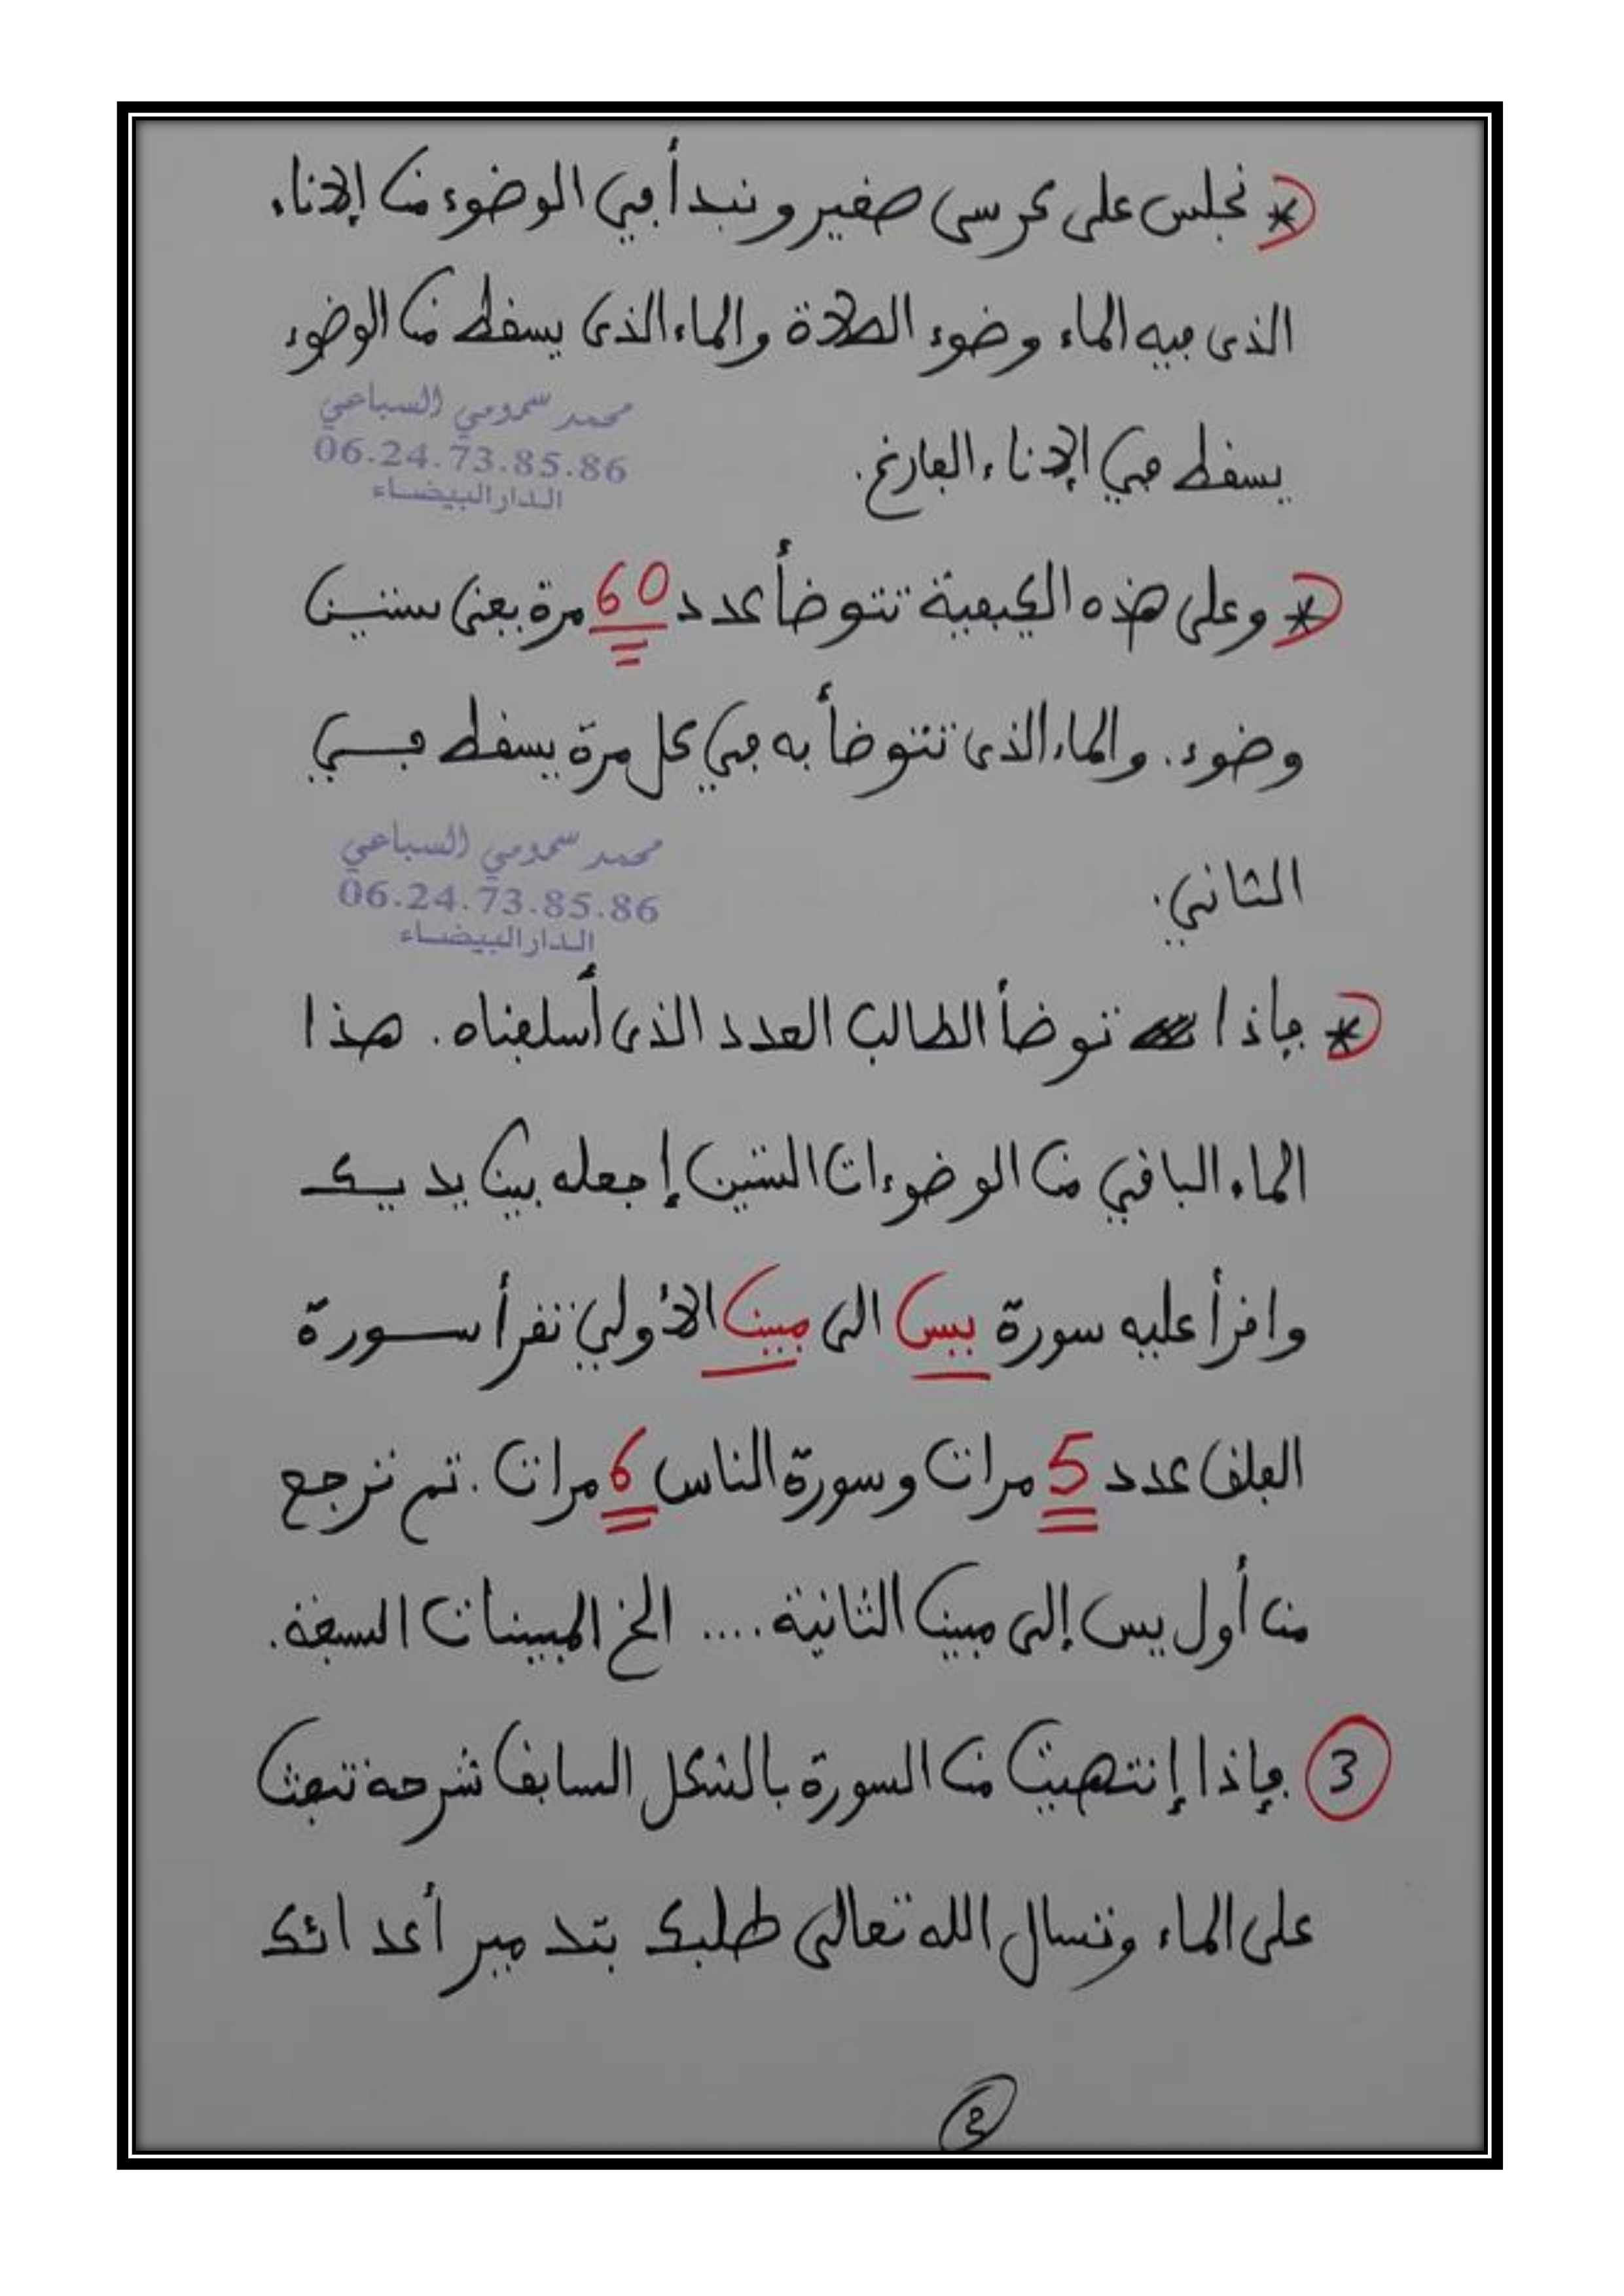 * نجلس على كرسى صغير ونبدأ في الوضوء من الإناء
الذى فيه الماء وضوء الصلاة والماء الذى يسقط من الوضوء
محمد سمومي السباعي
06.24.73.85.86
الدار البيضاء
يسقط في الإناء الفارغ.
* وعلى هذه الكيفية تتوضأ عدد 60 مرة بعنى ستين
وضوء. والماء الذى تتوضأ به في كل مرة يسقط في
محمد سمومي السباعي
06.24.73.85.86
الدار البيضاء
الثاني.
* فإذا توضأ الطالب العدد الذى أسلفناه. هذا
الماء الباقي من الوضوءات الستين إجعله بين يديك
واقرأ عليه سورة يس الى مبين الأولي تقرأ سورة
الفلق عدد 5 مرات وسورة الناس 6 مرات. تم ترجع
من أول يس إلى مبين الثانية.... الخ المبينات السبعة.
3 فإذا إنتهيت من السورة بالشكل السابق شرحه تنفث
على الماء وتسال الله تعالى طلبك بتدمير أعدائك
2